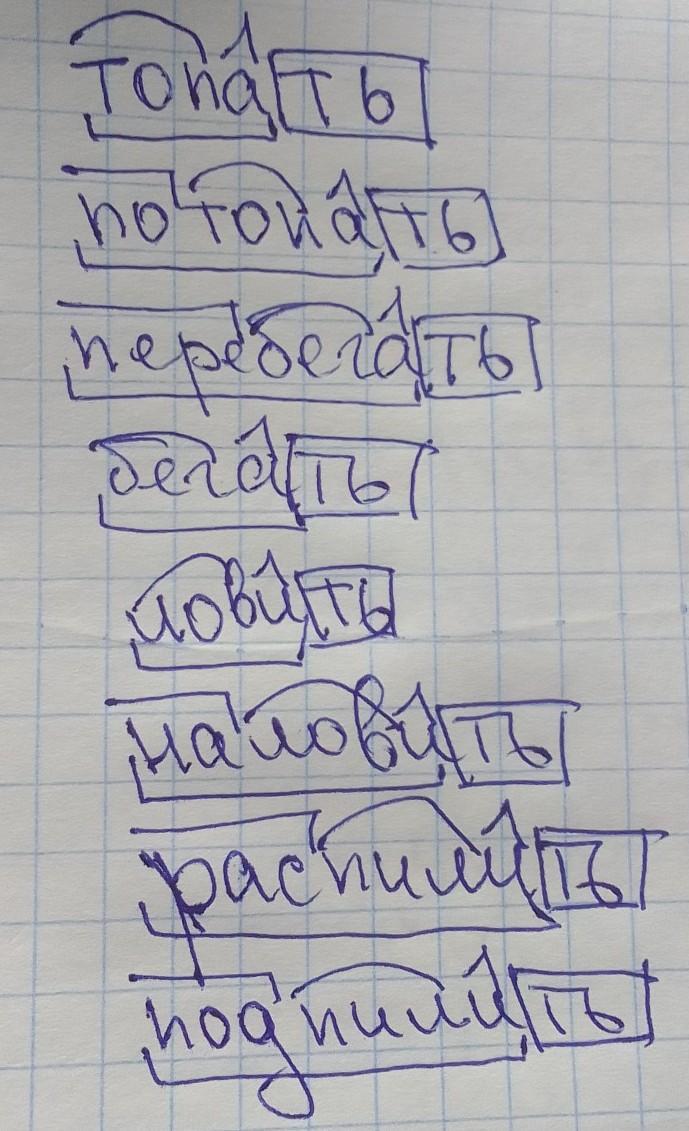 топать
потопать
перебегать
бегать
ловить
наловить
распилить
подпилить